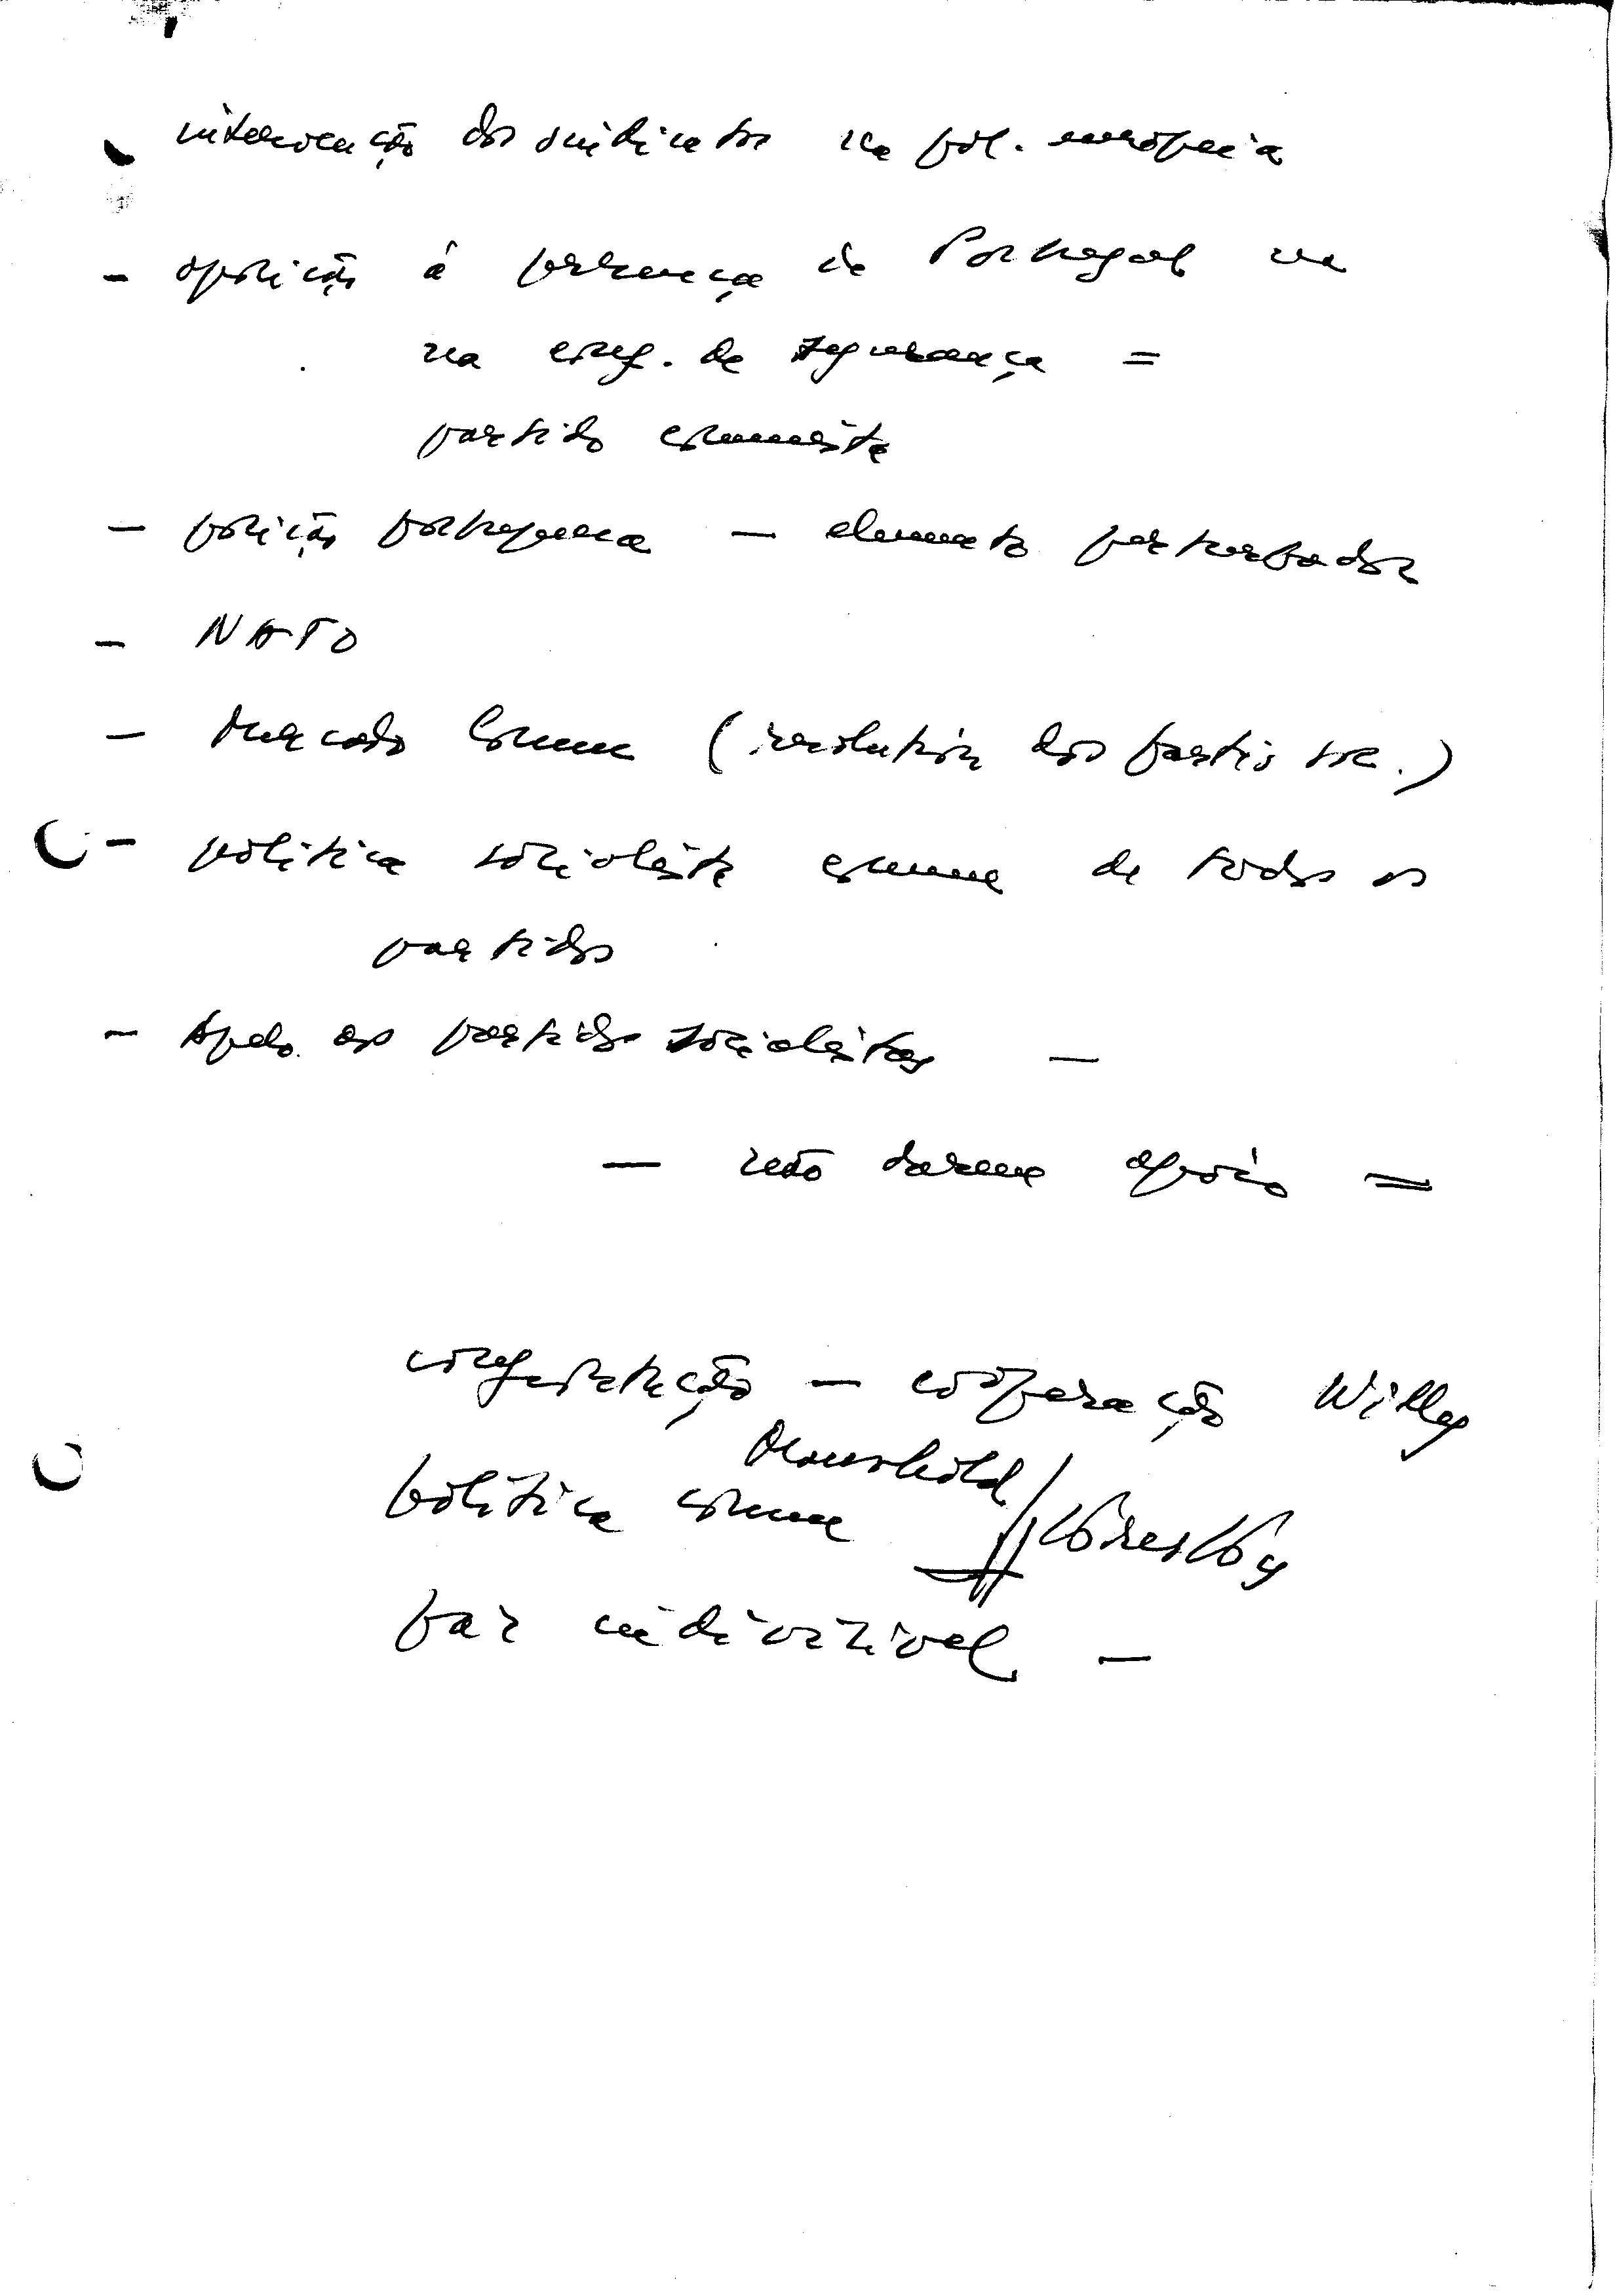 - intervenção dos sindicatos na pol. europeia
- oposição à presença de Portugal na
na conf. de segurança =
partido comunista
- posição portuguesa - elemento perturbador
- NATO
- Mercado Comum (resolution dos partis soc.)
- política socialista comum de todos os
partidos
- Apelo aos partidos socialistas -
- não darem apoio =
- cooperação Willy
política comum
Kreisky
paz indivisível -